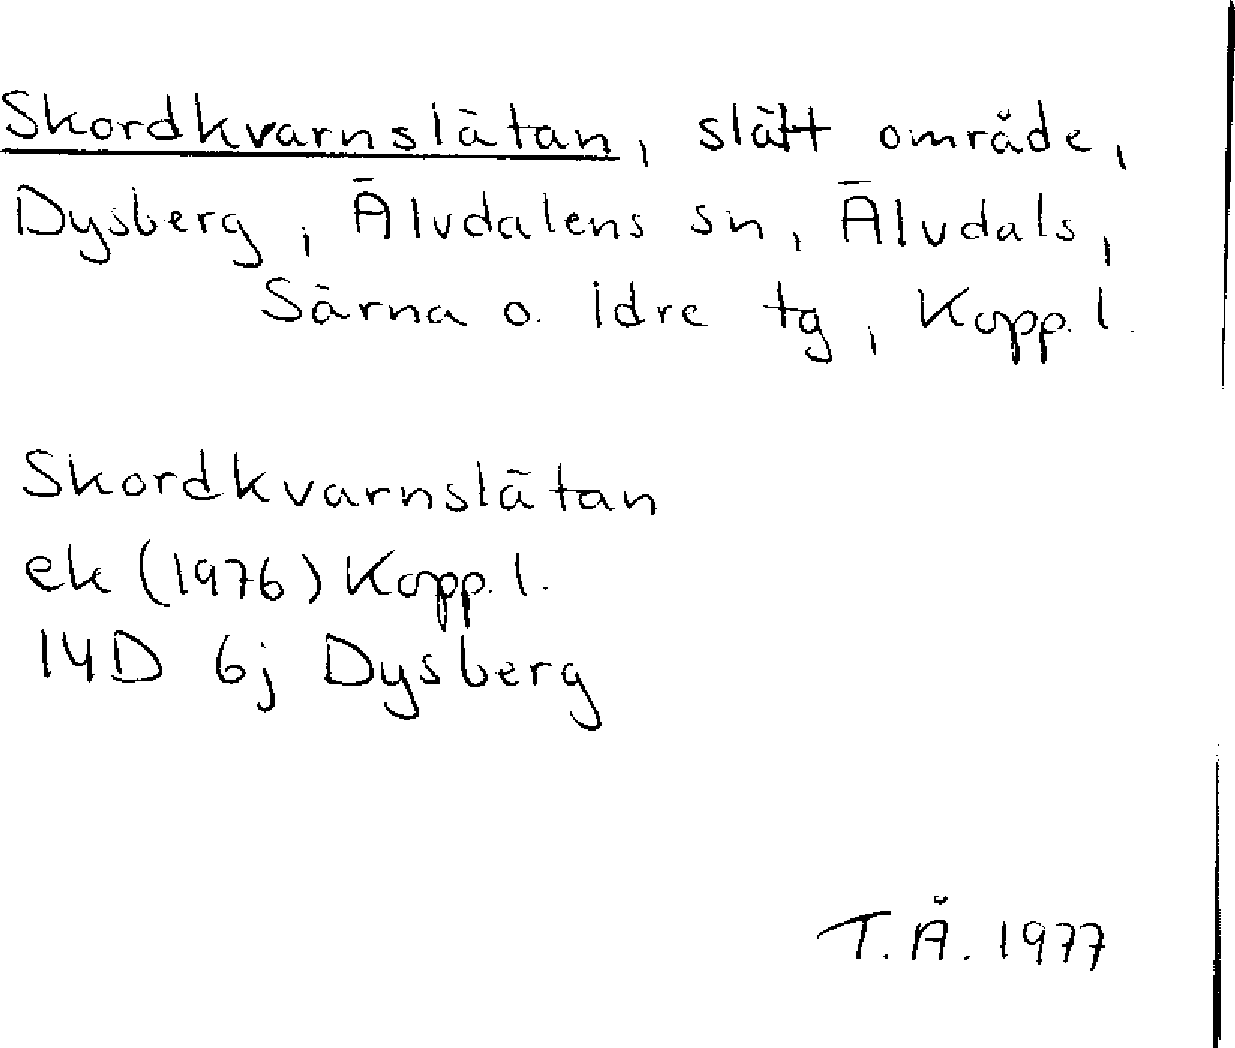 Skordkvarnslätan, slätt område,
Dysberg, Älvdalens sn, Älvdals,
Särna o. Idre tg, Kopp. l.
Skordkvarnslätan
ek (1976) Kopp. l.
14D 6j Dysberg
T.Å. 1977